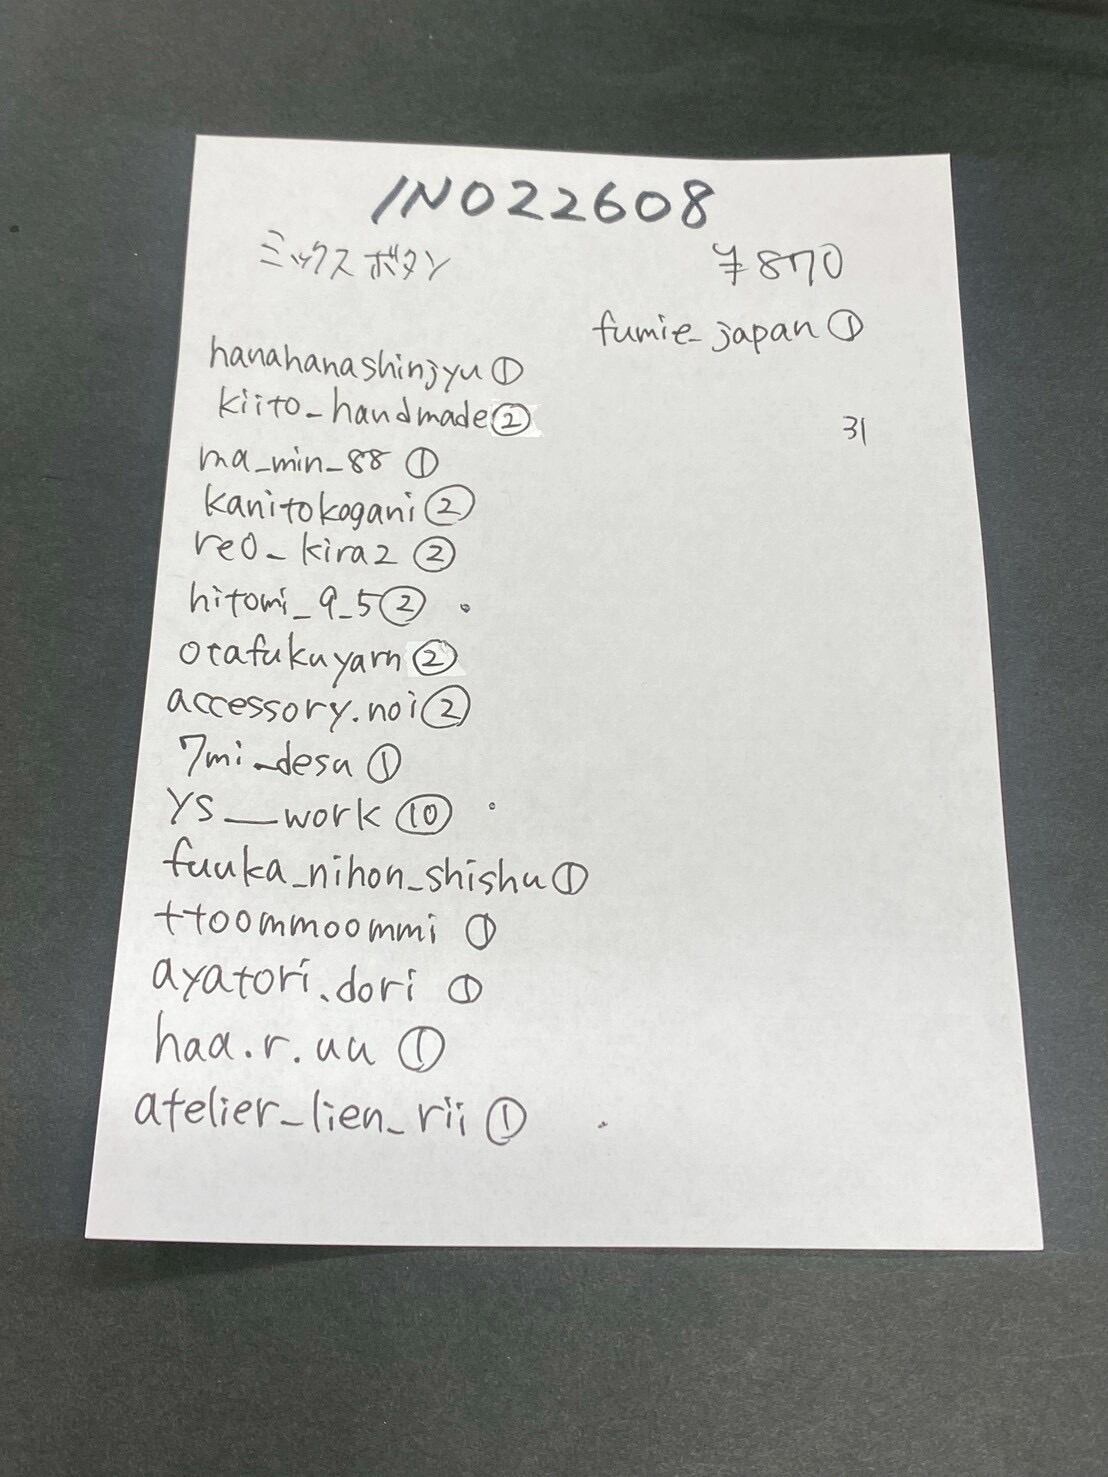 IN022608
ミックスボタン ¥870
fumie_japan①
hanahanashinjyu①
kiito_handmade②
31
ma_min_88 ①
kanitokogani②
reo_kira2 ②
hitomi_9_5②
otafukuyarn②
accessory.noi②
7mi_desu ①
YS__work ⑩
fuuka_nihon_shishu①
ttoommoommi ①
ayatori.dori ①
haa.r.uu ①
atelier_lien_rii ①